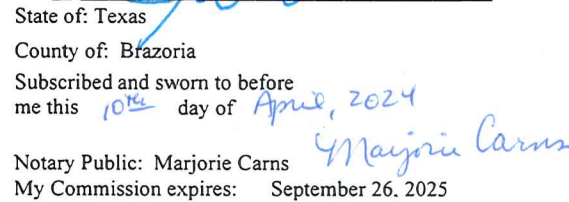 State of: Texas
County of: Brazoria
Subscribed and sworn to before
me this 10th day of April, 2024
Marjorie Carns
Notary Public: Marjorie Carns
My Commission expires: September 26, 2025